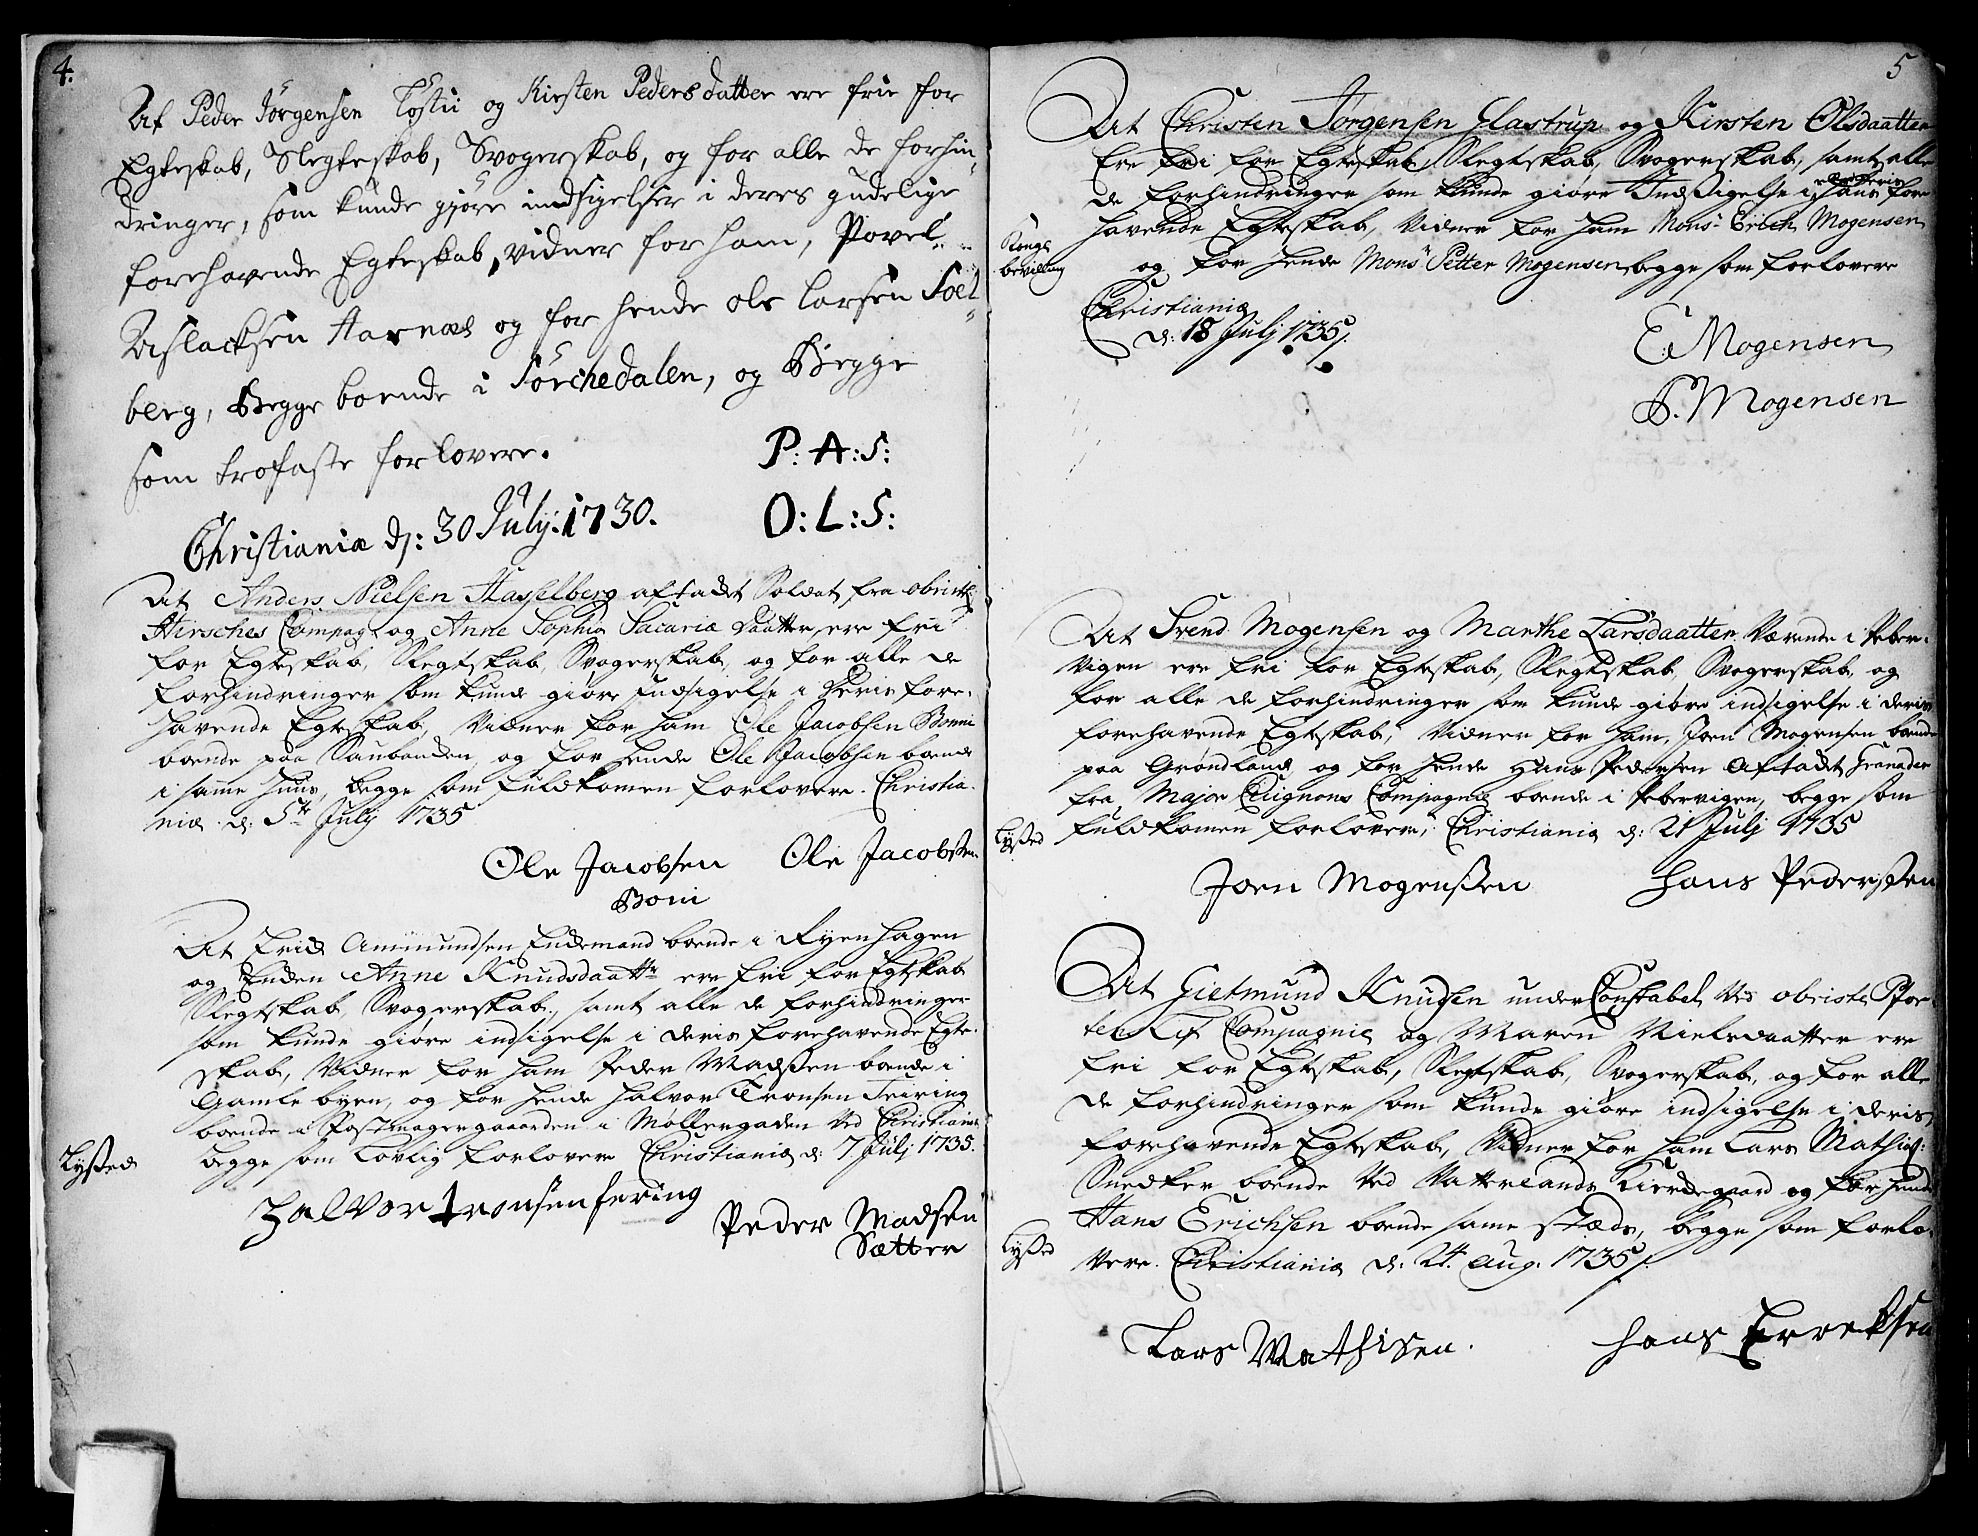 4.
At Peder Jörgensen Töstü og Kirsten Pedersdatter ere frie for
Egteskab, Slegteskab, Svogerskab, og for alle de forhin-
dringer, som kunde gjöre indsigelser i deres gudelige
forehavende Egteskab, vidner for ham, Povel
Aslacksen Aarnæs og for hende ole larsen Soel-
berg, Begge boende i Sörchedalen, og Begge
som trofaste forlovere.
P: A: S:
Christianiæ d: 30 July: 1730.
O: L: S:
At Anders Nielsen Hasselberg aftadet Soldat fra obriste
Hirsches Compag. og Anne Sophia Sacariæ Daatter ere fri
for Egteskab, Slegtskab, Svogerskab, og for alle de
forhindringer som kunde giøre Indsigelse i deris fore-
havende Egteskab, Vidner for ham Ole Jacobsen Bonni
boende paa Saubanden, og for hende Ole Jacobsen boende
i samme Huus, begge som fuldkomen forlovere. Christia-
niæ d: 5te July 1735
Ole Jacobsen Ole Jacobsen
Boni
At Erich Ammundsen Enkemand boende i Ryenhagen
og Enken Anne Knudsdaattr ere fri for Egteskab
Slegtskab, Svogerskab, samt alle de forhindringer
som kunde giøre indsigelse i deris forehavende Egte-
skab, Vidner for ham Peder Madssen boende i
Gamle byen, og for hende Halvor Tronsen Feiring
boende i Postmagergaarden i Møllergaden ved Christiania
begge som Lovlig forlovere Christianiæ d: 7 Julj 1735.
Lysted
Halvor tronsen fering
Peder Madsen
Sætter
5
At Christen Jørgensen Glastrup og Kirsten Olsdaatter
Ere fri for Egteskab, Slegtskab, Svogerskab, samt alle
de forhindringer som kunde giøre Indssigelse i deris fore
havende Egteskab, Vidner for ham Monsr Erich Mogensen
Kongl.
bevilling
og for hende Monsr Petter Mogensen, begge som forlovere
Christianiæ
d: 18 Julj 1735.
E. Mogensen
P. Mogensen
At Svend Mogensen og Marthe Larsdaatter Værende i Peber-
vigen ere fri for Egteskab, Slegtskab, Svogerskab, og
for alle de forhindringer som kunde giøre indsigelse i deris
forehavende Egteskab, Vidner for ham, Joen Mogensen boende
paa Grønland, og for hende Hans Pedersen Aftadet Granader
fra Major Chignons Compagnie boende i Pebervigen, begge som
Lysted
fuldkomen forlovere, Christiania d: 21 Julj 1735
Joen Mogenssen Hans Pederssen
At Gietmund Knudsen under Constabel ved obriste Stor-
Compagnie og Maren Nielsdaatter ere
fri for Egteskab, Slegtskab, Svogerskab, og for alle
de forhindringer som kunde giøre indsigelse i deris
forehavende Egteskab, Vidner for ham Lars Mathis:
Snedker boende ved Vatterlands Kierkegaard og for hende
Hans Erichsen boende same stæds, begge som forlo-
Lysted
vere. Christiania d: 24. aug. 1735.
Lars Mathisen. Hans Erreksen